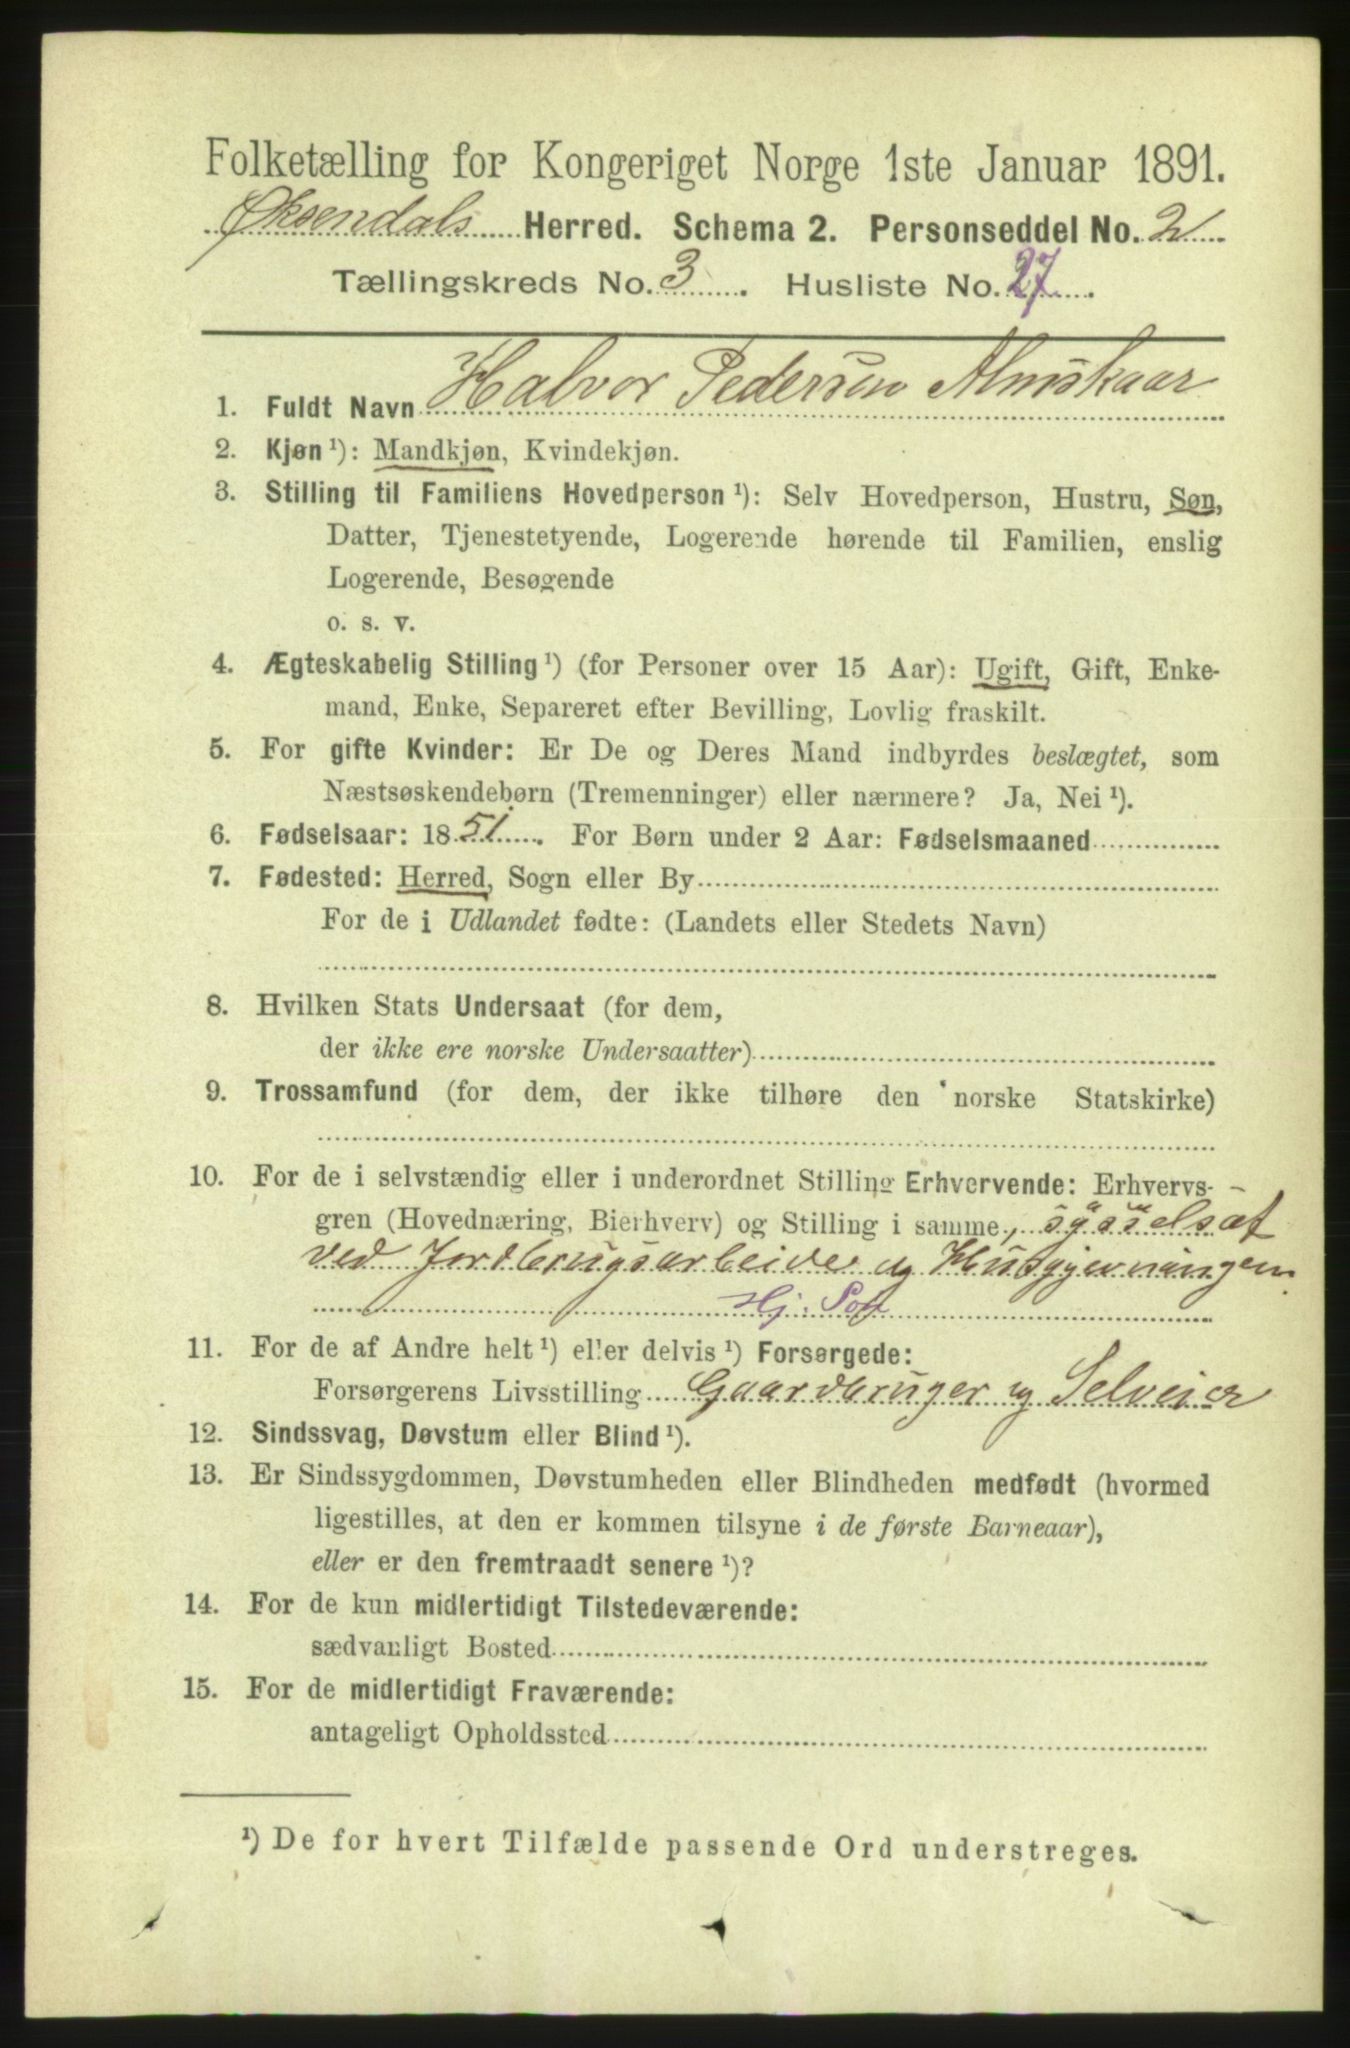 Folketælling for Kongeriget Norge 1ste Januar 1891.
Øksendals Herred. Schema 2. Personseddel No. 2
Tællingskreds No. 3. Husliste No. 27.
1. Fuldt Navn Halvor Pedersen Almskaar
2. Kjøn ¹): Mandkjøn, Kvindekjøn.
3. Stilling til Familiens Hovedperson ¹): Selv Hovedperson, Hustru, Søn,
Datter, Tjenestetyende, Logerende hørende til Familien, enslig
Logerende, Besøgende
o. s. v.
4. Ægteskabelig Stilling ¹) (for Personer over 15 Aar): Ugift, Gift, Enke-
mand, Enke, Separeret efter Bevilling, Lovlig fraskilt.
5. For gifte Kvinder: Er De og Deres Mand indbyrdes beslægtet, som
Næstsøskendebørn (Tremenninger) eller nærmere? Ja, Nei ¹).
6. Fødselsaar: 1851. For Børn under 2 Aar: Fødselsmaaned
7. Fødested: Herred, Sogn eller By
For de i Udlandet fødte: (Landets eller Stedets Navn)
8. Hvilken Stats Undersaat (for dem,
der ikke ere norske Undersaatter)
9. Trossamfund (for dem, der ikke tilhøre den norske Statskirke)
10. For de i selvstændig eller i underordnet Stilling Erhvervende: Erhvervs-
gren (Hovednæring, Bierhverv) og Stilling i samme, sysselsat
ved Jordbrugsarbeide og Husgjerningen
Hj. Søn
11. For de af Andre helt ¹) eller delvis ¹) Forsørgede:
Forsørgerens Livsstilling Gaardbruger og Selveier
12. Sindssvag, Døvstum eller Blind ¹).
13. Er Sindssygdommen, Døvstumheden eller Blindheden medfødt (hvormed
ligestilles, at den er kommen tilsyne i de første Barneaar),
eller er den fremtraadt senere ¹)?
14. For de kun midlertidigt Tilstedeværende:
sædvanligt Bosted
15. For de midlertidigt Fraværende:
antageligt Opholdssted
¹) De for hvert Tilfælde passende Ord understreges.